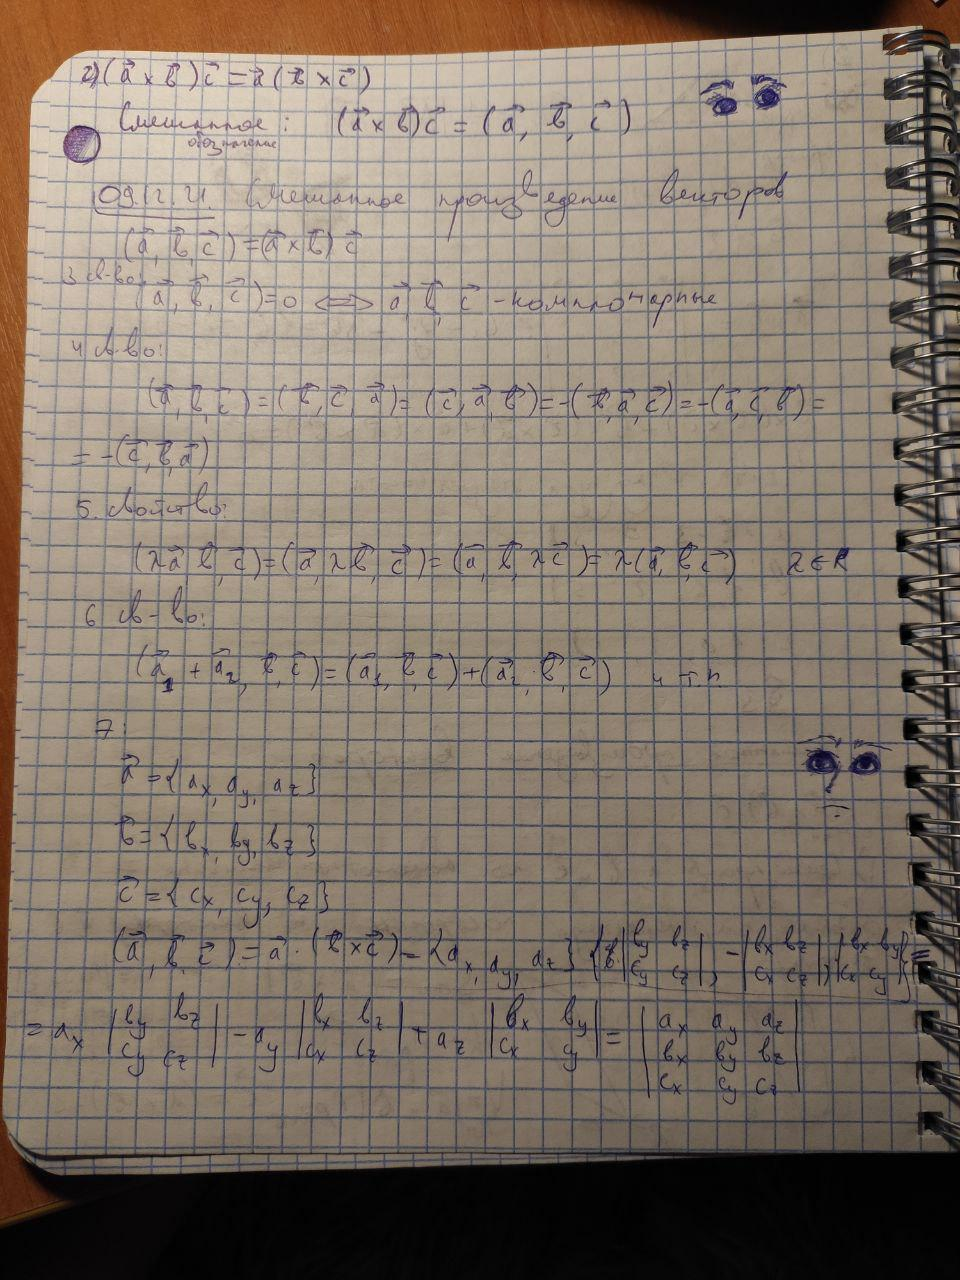 2) (a⃗ × b⃗) c⃗ = a⃗ (b⃗ × c⃗)
Смешанное: (a⃗ × b⃗) c⃗ = (a⃗, b⃗, c⃗)
обозначение
09.12.21. Смешанное произведение векторов
(a⃗, b⃗, c⃗) = (a⃗ × b⃗) c⃗
3 св-во:
(a⃗, b⃗, c⃗) = 0 <=> a⃗, b⃗, c⃗ - компланарные
4 св-во:
(a⃗, b⃗, c⃗) = (b⃗, c⃗, a⃗) = (c⃗, a⃗, b⃗) = -(b⃗, a⃗, c⃗) = -(a⃗, c⃗, b⃗) =
= -(c⃗, b⃗, a⃗)
5. свойство:
(λa⃗, b⃗, c⃗) = (a⃗, λb⃗, c⃗) = (a⃗, b⃗, λc⃗) = λ(a⃗, b⃗, c⃗) λ ∈ R
6 св-во:
(a⃗₁ + a⃗₂, b⃗, c⃗) = (a⃗₁, b⃗, c⃗) + (a⃗₂, b⃗, c⃗) и т.п.
7:
a⃗ = {ax, ay, az}
b⃗ = {bx, by, bz}
c⃗ = {cx, cy, cz}
(a⃗, b⃗, c⃗) = a⃗ · (b⃗ × c⃗) = {ax, ay, az} {|by bz; cy cz|, -|bx bz; cx cz|, |bx by; cx cy|} =
= ax |by bz; cy cz| - ay |bx bz; cx cz| + az |bx by; cx cy| = |ax ay az; bx by bz; cx cy cz|